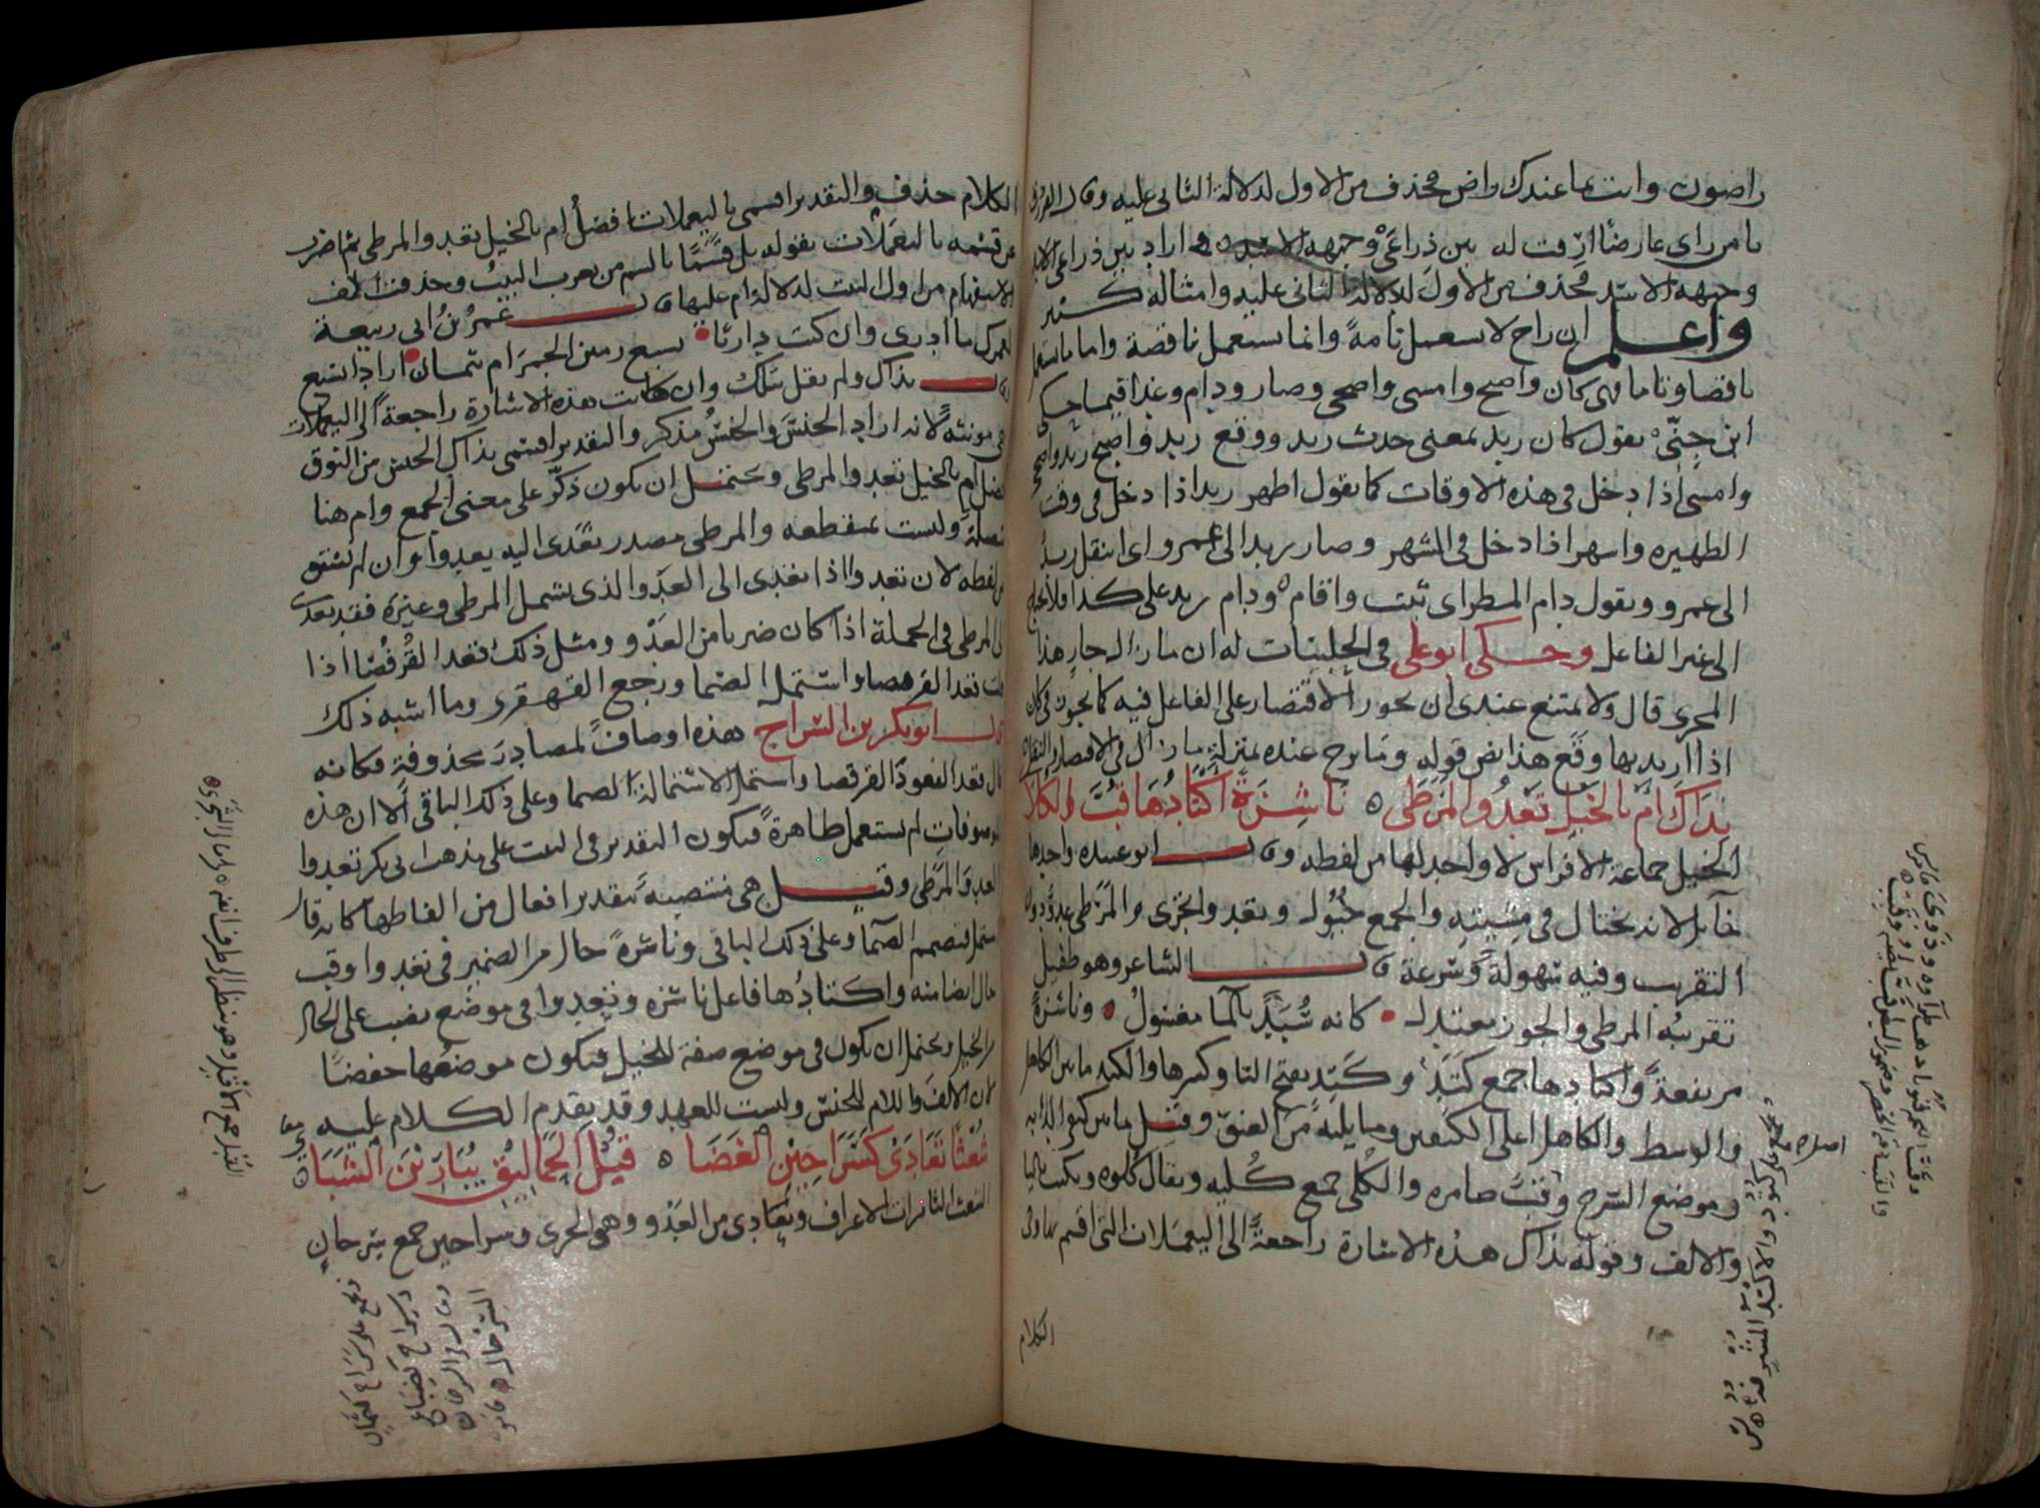 راضون وانت بما عندك راض فحذف من الاول لدلالة الثانى عليه وقال الفرزدق
يا من راى عارضا ارقت له بين ذراعى وجبهه الاسد اراد بين ذراعى الاسد
وجبهه الاسد فحذف من الاول لدلالة الثانى عليه وامثاله كثير
واعلم ان راح لا يستعمل تامة وانما يستعمل ناقصة واما ما يستعمل
ناقصا وتاما فهى كان واصبح وامسى واضحى وصار ودام وغدا فيما حكى
ابن جنى يقول كان زيد بمعنى حدث زيد ووقع زيد واصبح زيد واضحى
وامسى اذا دخل فى هذه الاوقات كما يقول اظهر زيد اذا دخل فى وقت
الظهيره واشهر اذا دخل فى الشهر وصار زيد الى عمرو اى انتقل زيد
الى عمرو ويقول دام المطر اى ثبت واقام ودام زيد على كذا فلا يحتاج
الى غير الفاعل وحكى ابو على فى الحلبيات له ان ما زال جار هذا
المجرى قال ولا يمتنع عندى ان يجوز الاقتصار على الفاعل فيه كما يجوز فى كان
اذا اريد بها وقع هذا نص قوله وما برح عنده بمنزلة ما زال فى الاقتصار والنقصان
بذاك ام بالخيل تعدو المرطى ناشزة اكتادها قب الكلا
الخيل جماعة الافراس لا واحد لها من لفظه وقال ابو عبيده واحدها
خائل لانه يختال فى مشيته والجمع خيول وتعدو تجرى والمرطى عدو دون
التقريب وفيه سهولة وسرعة قال الشاعر وهو طفيل
تقريبه المرطى والجوز معتدل كانه سبد بالما مغسول وناشزة
مرتفعة واكتادها جمع كتد وكتد بفتح التا وكسرها والكتد ما بين الكاهل
والوسط والكاهل اعلى الكتفين وما يليه من العنق وقيل ما بين كتفى الدابه
وموضع السرج وقب ضامره والكلى جمع كليه ويقال كلوه ويكتب باليا
والالف وقوله بذاك هذه الاشارة راجعة الى اليعملات التى اقسم بها وفى
الكلام
اصلاه
الكلام حذف والتقدير اقسمى باليعملات افضل ام بالخيل تعدو المرطى ثم اضرب
عن قسمه باليعملات بقوله بل قسما بالشم من يعرب البيت وحذفت الف
الاستفهام من اول البيت لدلالة ام عليها قال عمر بن ابى ربيعة
لعمرك ما ادرى وان كنت داريا بسبع رمين الجمر ام بثمان اراد ابسبع
وقال بذاك ولم يقل بتلك وان كانت هذه الاشارة راجعة الى اليعملات
وهى مونثه لانه اراد الجنس والجنس مذكر والتقدير اقسمى بذاك الجنس من النوق
افضل ام بالخيل تعدو المرطى ويحتمل ان يكون ذكر على معنى الجمع وام هنا
متصلة وليست بمنقطعه والمرطى مصدر تعدى اليه يعدو وان لم يشتق
من لفظه لان تعدو اذا تعدى الى العدو الذى يشمل المرطى وغيره فقد تعدى
الى المرطى فى الجملة اذا كان ضربا من العدو ومثل ذلك قعد القرفصا اذا
قلت قعد القرفصا واشتمل الصما ورجع القهقرى وما اشبه ذلك
قال ابو بكر بن السراج هذه اوصاف لمصادر محذوفة فكانه
قال قعد القعود القرفصا واشتمل الاشتمالة الصما وعلى ذلك الباقى الا ان هذه
الموصوفات لم يستعمل ظاهرة فيكون التقدير فى البيت على مذهب ابى بكر تعدوا
العدو المرطى وقيل هى منتصبة بتقدير افعال من الفاظها كانه قال
اشتمل فتصمم الصما وعلى ذلك الباقى وناشزة حال من الضمير فى تعدوا وقب
حال ايضا منه واكتادها فاعل ناشزه وتعدوا فى موضع نصب على الحال
من الخيل ويحتمل ان يكون فى موضع صفة للخيل فيكون موضعها خفضا
لان الالف واللام للجنس وليست للعهد وقد تقدم الكلام عليه
شعثا تعادى كسراحين الغضا قبل الحماليق يبارين الشبا
الشعث الثايرات الاعراف وتعادى من العدو وهى الجرى وسراحين جمع سرحان